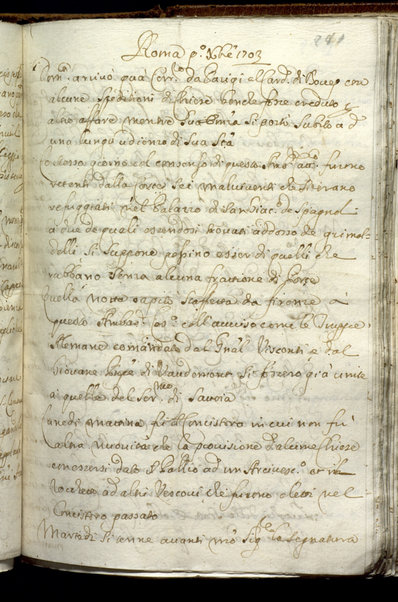 241
Roma p.º Xbre 1703
Dom.ca arrivò qua Corr.e da Parigi
alcune speditioni di Chiese
altro affare mentre Sua Em.za si portò subito a
una lunga udienza di Sua S.tà
Lo stesso giorno col consenso di questo furono
retenti dalla Corte sei malviventi che si erano
refuggiati nel Palazzo di San Giac.º de Spagnoli
a due de quali essendosi trovati addosso de grimal-
delli si suppone possino esser di quelli che
rubbano senza alcuna frattione di Porte
Quella notte capitò staffetta da Firenze a
questo Amb.re coll'avviso come le Truppe
Alemane comandate dal Gnāl Visconti e dal
Giovane Pnpe di Vaudemont si fossero già unite
a quelle del Ser.mo Duca di Savoia
Lunedì mattina fù Concistoro in cui non fù
altra novità che la provisione d'alcune Chiese
essendosi dato il Pallio ad un Arcivesc.º et il
Rocchetto ad altri Vescovi che furono eletti nel
Concistoro passato
Martedì si tenne avanti N.ro Sig.re la Segnatura